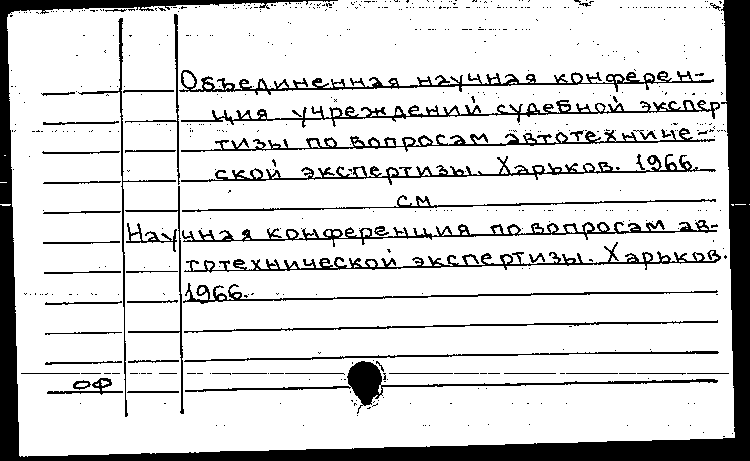 Объединенная научная конферен-
ция учреждений судебной экспер-
тизы по вопросам автотехниче-
ской экспертизы. Харьков. 1966.
см
Научная конференция по вопросам ав-
тотехнической экспертизы. Харьков.
1966.
оф